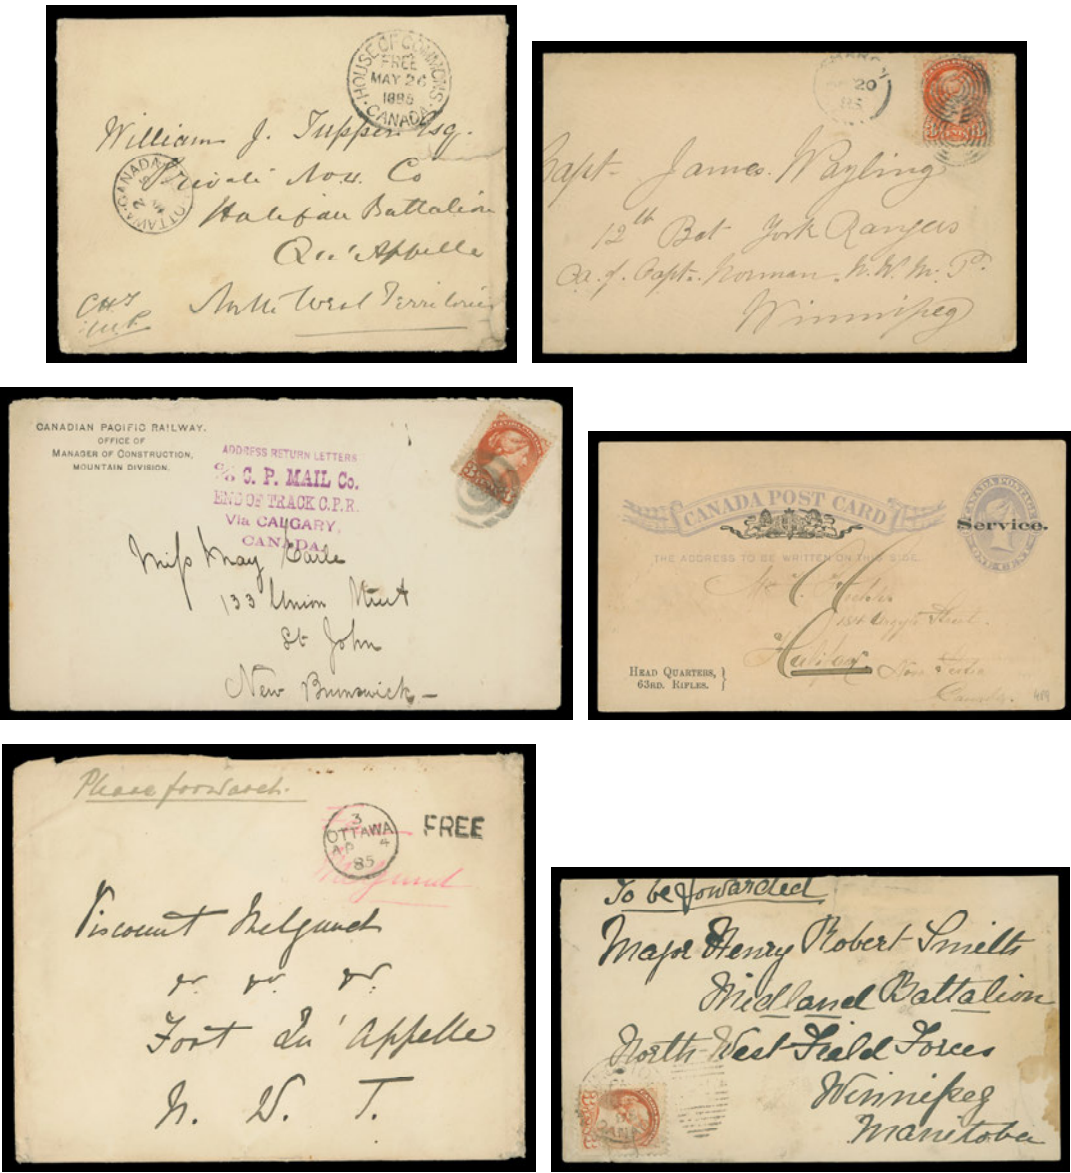 HOUSE OF COMMONS
FREE
MAY 26
1885
CANADA
William J. Tupper Esq.
Private No 4 Co
OTTAWA CANADA
Halifax Battalion
Qu'Appelle
North West Territories
CHT
M.P.
20
85
3 3
Capt. James. Wayling
12th Bat York Rangers
Ca. of. Capt. Norman. N. W. M. P.
Winnipeg
CANADIAN PACIFIC RAILWAY.
OFFICE OF
MANAGER OF CONSTRUCTION,
MOUNTAIN DIVISION.
ADDRESS RETURN LETTERS
C/o C. P. MAIL Co.
END OF TRACK C.P.R.
Via CALGARY,
CANADA.
Miss May Earle
133 Union Street
St John
New Brunswick
CANADA POST CARD
CANADA POSTAGE
ONE CENT
Service.
THE ADDRESS TO BE WRITTEN ON THIS SIDE.
Mr C.
184 Argyle Street.
Halifax Nova Scotia
Canada.
HEAD QUARTERS,
63RD. RIFLES.
489
Please forward.
3
OTTAWA
AP 4
85
FREE
Melgund
Viscount Melgund
Fort Qu'Appelle
N. W. T.
To be fowarded
Major Henry Robert Smith
Midland Battalion
North-West Field Forces
Winnipeg
Manitoba